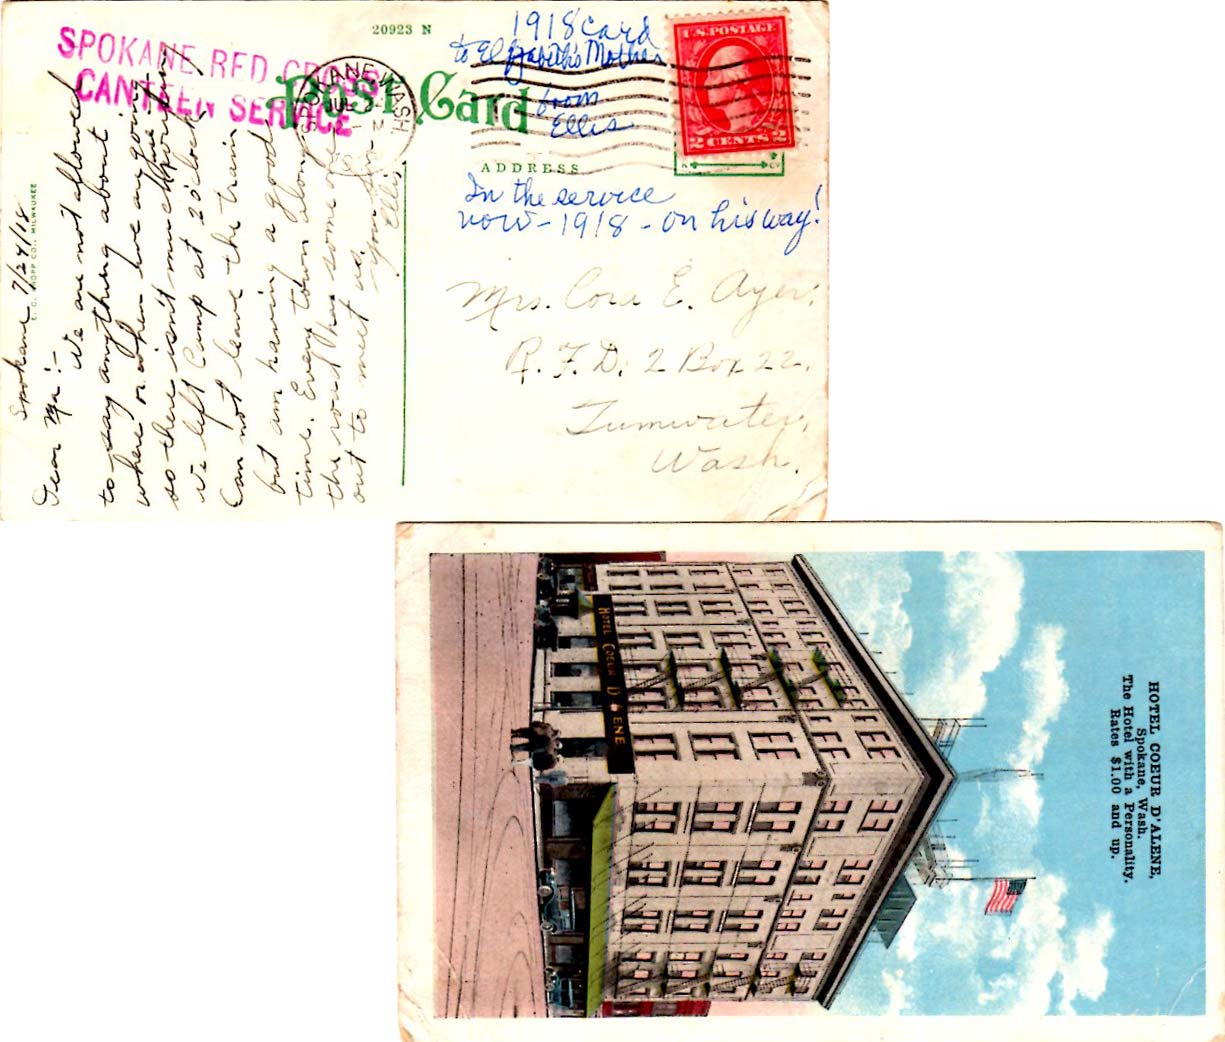 20923 N
SPOKANE RED CROSS
CANTEEN SERVICE
Post Card
SPOKANE, WASH.
JUL
1918 card
to Elizabeth's Mother
from
Ellis
U.S. POSTAGE
2 CENTS 2
ADDRESS
In the service
now - 1918 - on his way!
Mrs. Cora E. Ayer,
R. F. D. 2 Box 22,
Tumwater,
Wash.
E. C. KROPP CO., MILWAUKEE
Spokane 7/24/18
Dear Ma:-
We are not allowed
to say anything about
where or when we are going
so there isn't much
We left Camp at 2 o'clock
Can not leave the train
but am having a good
time. Every town along
the road has some one
out to meet us.
Your Son
Ellis
HOTEL COEUR D'ALENE,
Spokane, Wash.
The Hotel with a Personality.
Rates $1.00 and up.
HOTEL COEUR D'ALENE